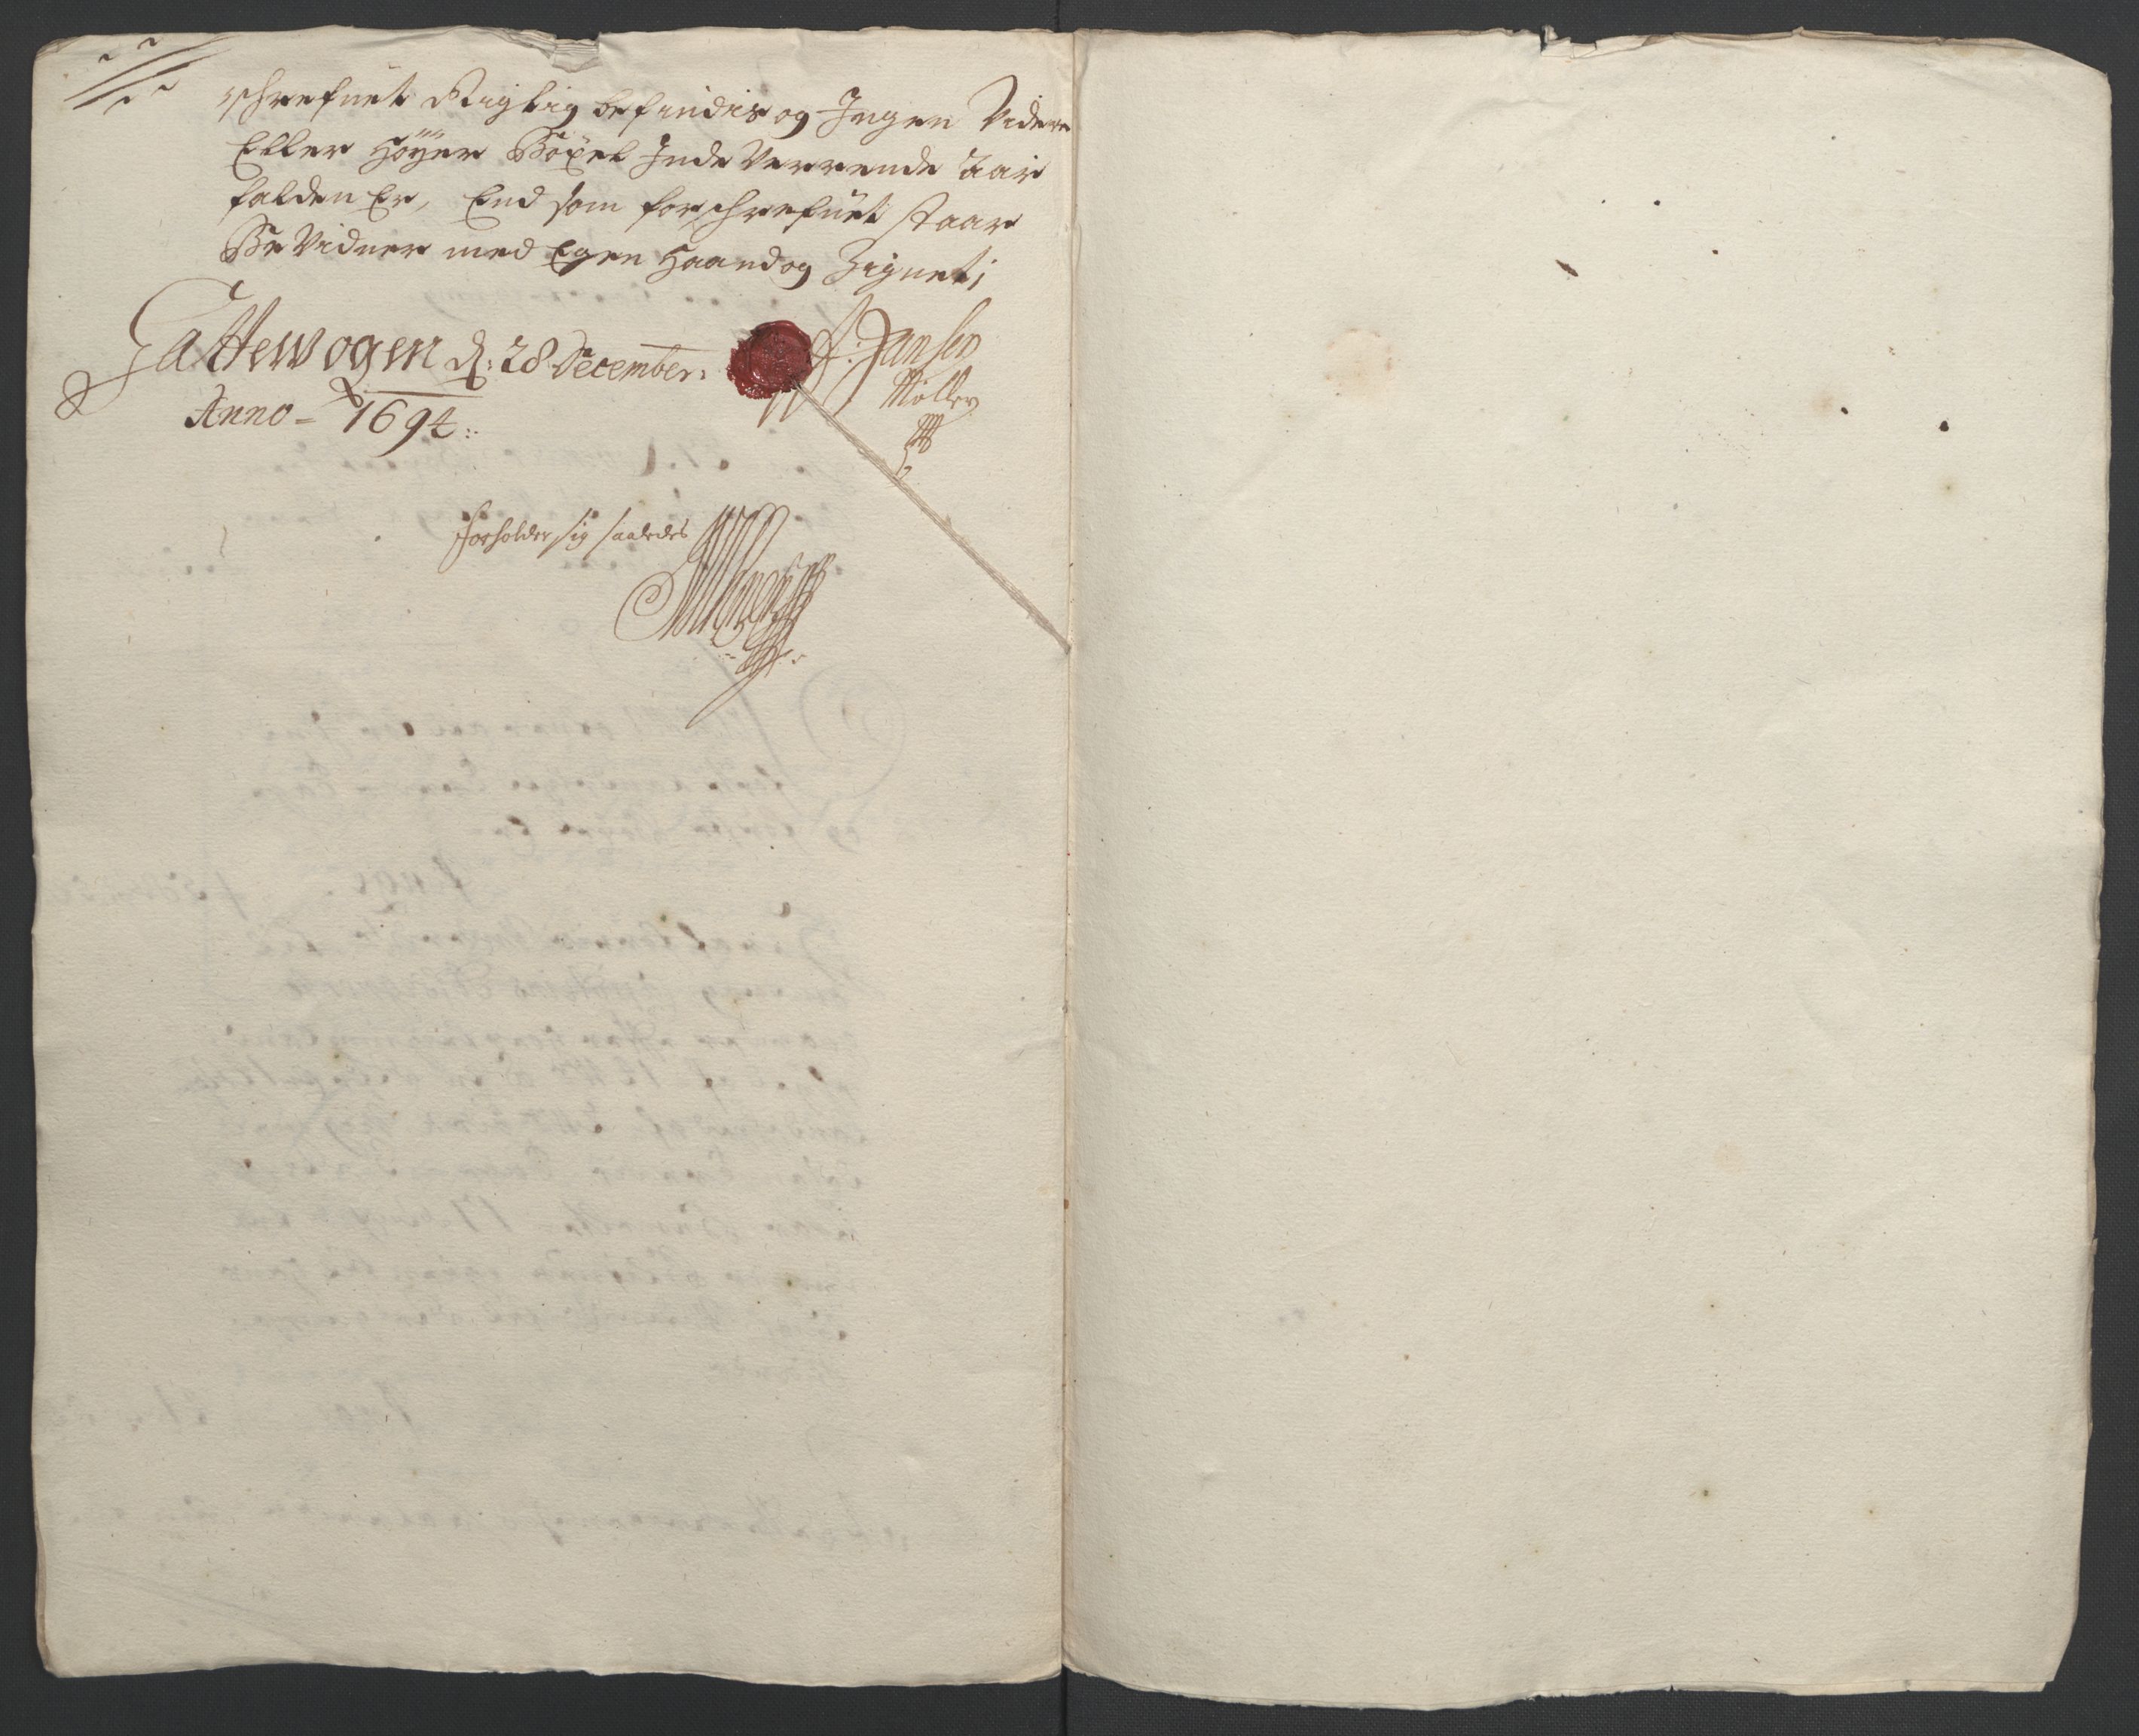 schrefuet Rigtig befindis og Ingen Videre
Eller Høyer Böxel Inde Verrende Aar
falden Er, End som forschrefuet staar
Be Vidner med Egen Haand og Zignet;
Gattewogen d: 28 December:
Anno = 1694:
J: Jansen
Møller
forholder sig saaledes